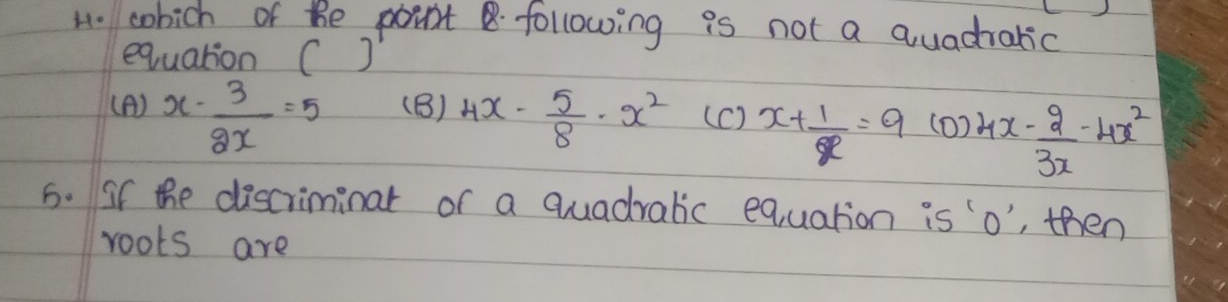 4. which of the point 2. following is not a quadratic
equation ( )
(A) x - 3/2x = 5 (B) 4x - 5/8 - x² (C) x + 1/x = 9 (D) 4x - 2/3x - 4x²
5. If the discriminat of a quadratic equation is '0', then
roots are